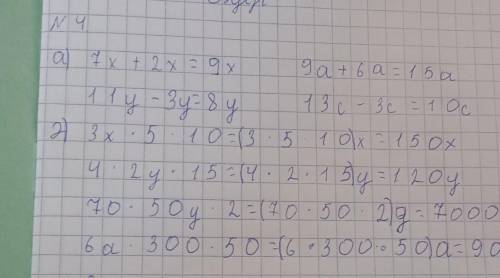 № 4
а) 7x + 2x = 9x 9a + 6a = 15a
11y - 3y = 8y 13c - 3c = 10c
2) 3x · 5 · 10 = (3 · 5 · 10)x = 150x
4 · 2y · 15 = (4 · 2 · 15)y = 120y
70 · 50y · 2 = (70 · 50 · 2)y = 7000
6a · 300 · 50 = (6 · 300 · 50)a = 90